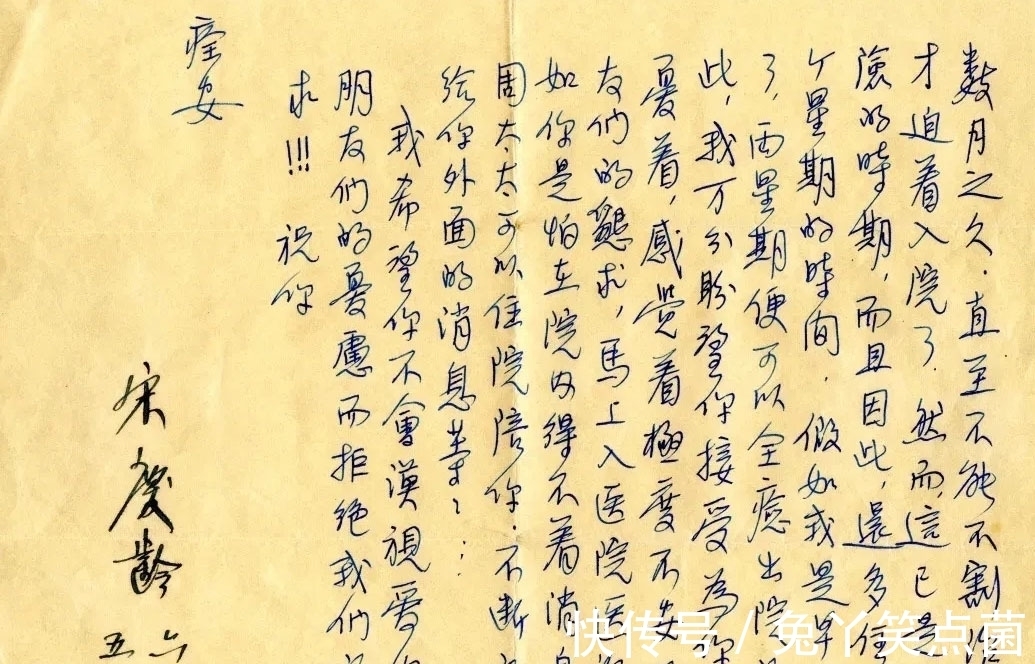 数月之久．直至不能不割治
才迫着入院了．然而，這已是
險的時期，而且因此，還多住
个星期的時间．假如我是早
了，両星期便可以全癒出院
此，我万分盼望你接受為你
憂着，感觉着極度不安
友们的懇求，馬上入医院医
如你是怕在院内得不着消息
周太太可以住院陪你．不断
给你外面的消息䓁：：
我希望你不會漠視爱你
朋友们的憂慮而拒绝我们
求!!! 祝你
痊安
宋慶齡
五 六
快传号 / 兔丫笑点菌